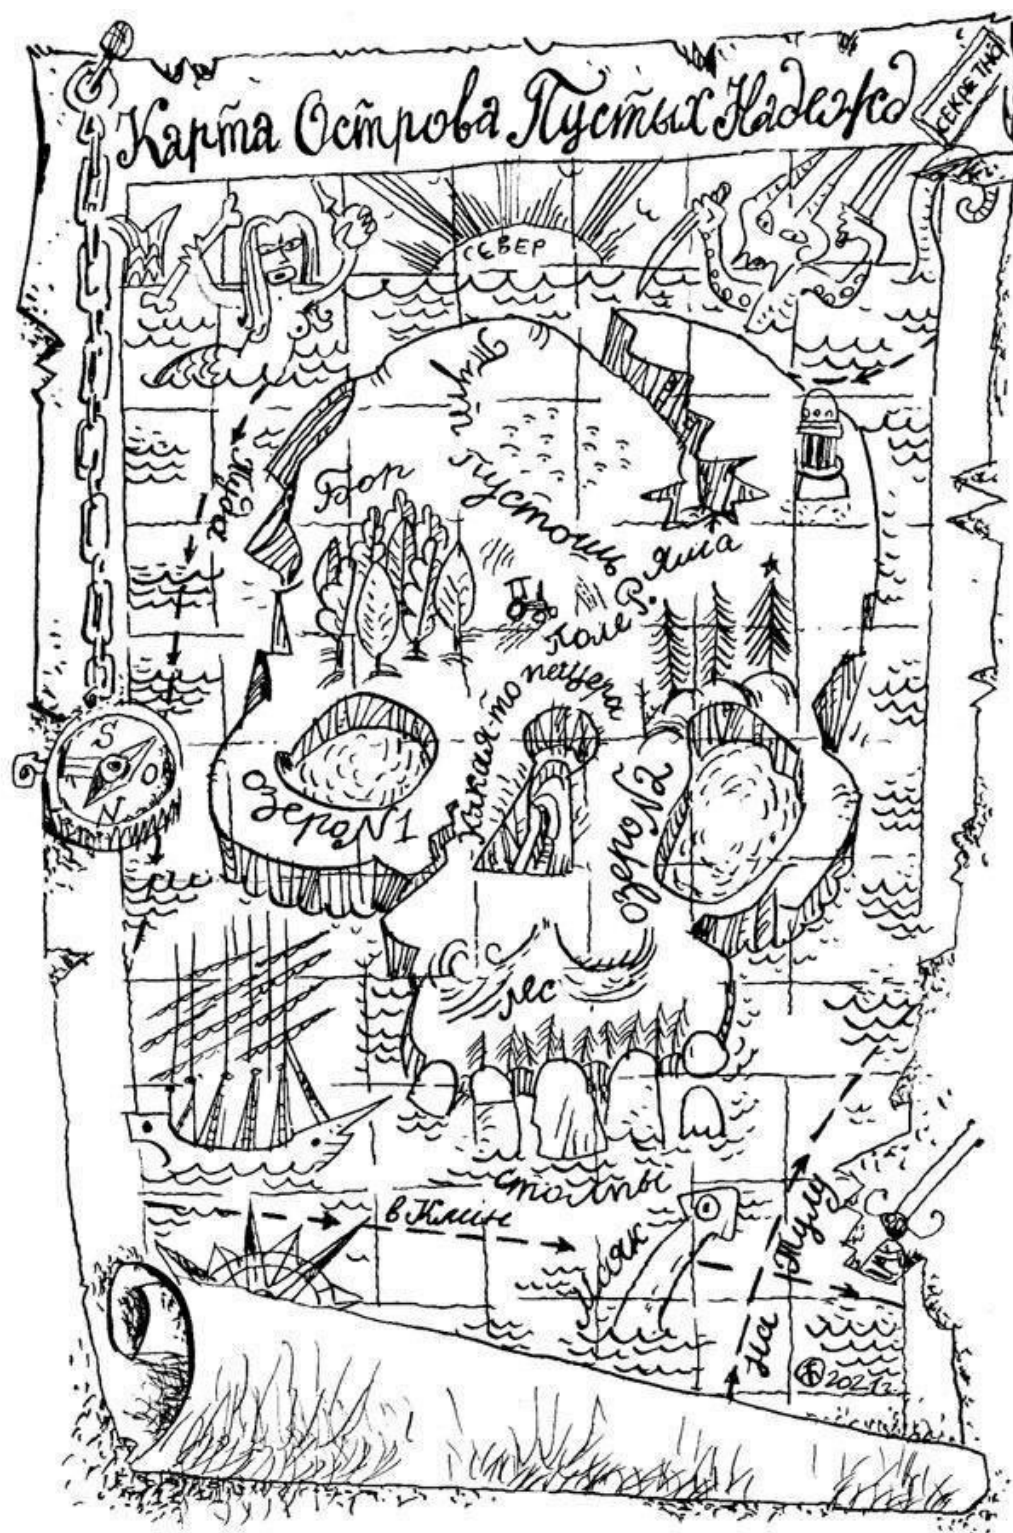 Карта Острова Пустых Надежд
СЕКРЕТНО
СЕВЕР
Бор
Пустошь
Р. Яма
Поле
Какая-то пещера
S
O
N
озеро N1
озеро N2
лес
столпы
в Клин
на Тулу
2021г.